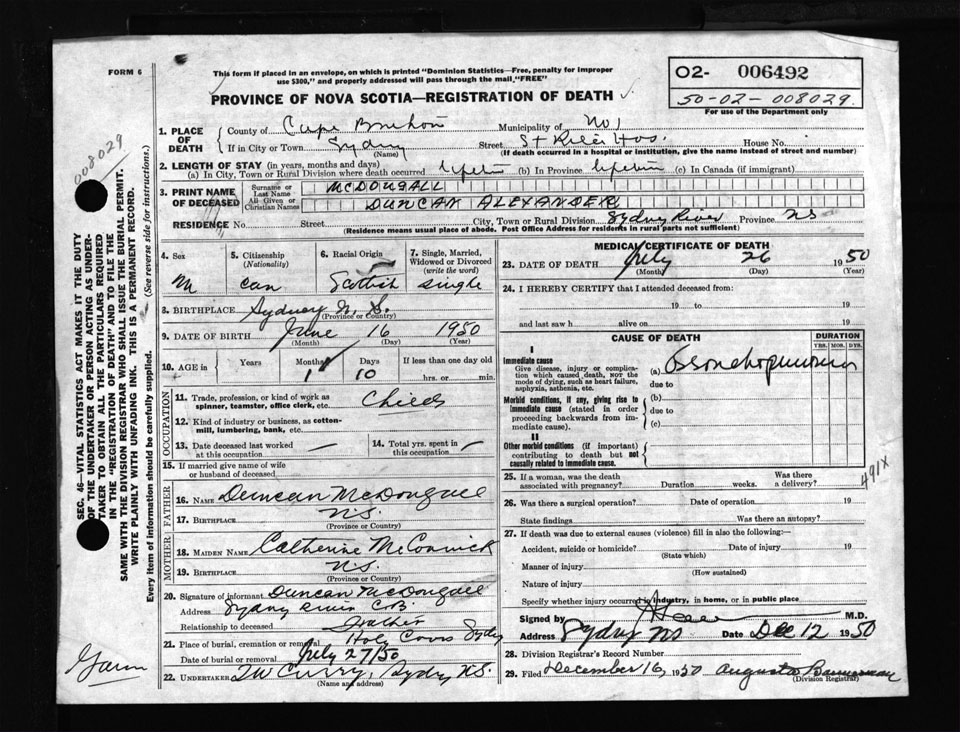 FORM 6
This form if placed in an envelope, on which is printed "Dominion Statistics—Free, penalty for improper
use $300," and properly addressed will pass through the mail, "FREE"
PROVINCE OF NOVA SCOTIA—REGISTRATION OF DEATH
O2- 006492
50-02-008029
For use of the Department only
008029
SEC. 46—VITAL STATISTICS ACT MAKES IT THE DUTY
OF THE UNDERTAKER OR PERSON ACTING AS UNDER-
TAKER TO OBTAIN ALL THE PARTICULARS REQUIRED
IN THE "REGISTRATION OF DEATH" AND TO FILE THE
SAME WITH THE DIVISION REGISTRAR WHO SHALL ISSUE THE BURIAL PERMIT.
WRITE PLAINLY WITH UNFADING INK. THIS IS A PERMANENT RECORD.
Every item of information should be carefully supplied. (See reverse side for instructions.)
1. PLACE OF DEATH
County of Cape Breton Municipality of No 1
If in City or Town Sydney Street St Rita's Hos. House No.
(Name) (If death occurred in a hospital or institution, give the name instead of street and number)
2. LENGTH OF STAY (in years, months and days)
(a) In City, Town or Rural Division where death occurred Lifetime (b) In Province Lifetime (c) In Canada (if immigrant)
3. PRINT NAME OF DECEASED
Surname or Last Name MCDOUGALL
All Given or Christian Names DUNCAN ALEXANDER
RESIDENCE No. Street City, Town or Rural Division Sydney River Province NS
(Residence means usual place of abode. Post Office Address for residents in rural parts not sufficient)
4. Sex M
5. Citizenship (Nationality) Can
6. Racial Origin Scottish
7. Single, Married, Widowed or Divorced (write the word) Single
8. BIRTHPLACE Sydney N.S.
(Province or Country)
9. DATE OF BIRTH June 16 1950
(Month) (Day) (Year)
10. AGE in Years Months 1 Days 10 If less than one day old hrs. or min.
OCCUPATION
11. Trade, profession, or kind of work as spinner, teamster, office clerk, etc. Child
12. Kind of industry or business, as cotton-mill, lumbering, bank, etc.
13. Date deceased last worked at this occupation —
14. Total yrs. spent in this occupation —
15. If married give name of wife or husband of deceased
FATHER
16. NAME Duncan McDougall
17. BIRTHPLACE N.S.
(Province or Country)
MOTHER
18. MAIDEN NAME Catherine McCormick
19. BIRTHPLACE N.S.
(Province or Country)
20. Signature of informant Duncan McDougall
Address Sydney River C.B.
Relationship to deceased Father
21. Place of burial, cremation or removal Holy Cross Sydney
Date of burial or removal July 27/50
22. UNDERTAKER TW Curry, Sydney N.S.
(Name and address)
MEDICAL CERTIFICATE OF DEATH
23. DATE OF DEATH July 26 1950
(Month) (Day) (Year)
24. I HEREBY CERTIFY that I attended deceased from:
19 to 19
and last saw h alive on 19
CAUSE OF DEATH
DURATION
YRS. MOS. DYS.
I
Immediate cause
Give disease, injury or complication which caused death, NOT the mode of dying, such as heart failure, asphyxia, asthenia, etc.
(a) Bronchopneumonia
due to
Morbid conditions, if any, giving rise to immediate cause (stated in order proceeding backwards from immediate cause).
(b)
due to
(c)
II
Other morbid conditions (if important) contributing to death but not causally related to immediate cause.
491X
25. If a woman, was the death associated with pregnancy? Duration weeks. Was there a delivery?
26. Was there a surgical operation? Date of operation 19
State findings Was there an autopsy?
27. If death was due to external causes (violence) fill in also the following:—
Accident, suicide or homicide? Date of injury 19
(State which)
Manner of injury
(How sustained)
Nature of injury
Specify whether injury occurred in industry, in home, or in public place
Signed by M.D.
Address Sydney NS Date Dec 12 1950
28. Division Registrar's Record Number
29. Filed December 16, 1950 Augusta
(Division Registrar)